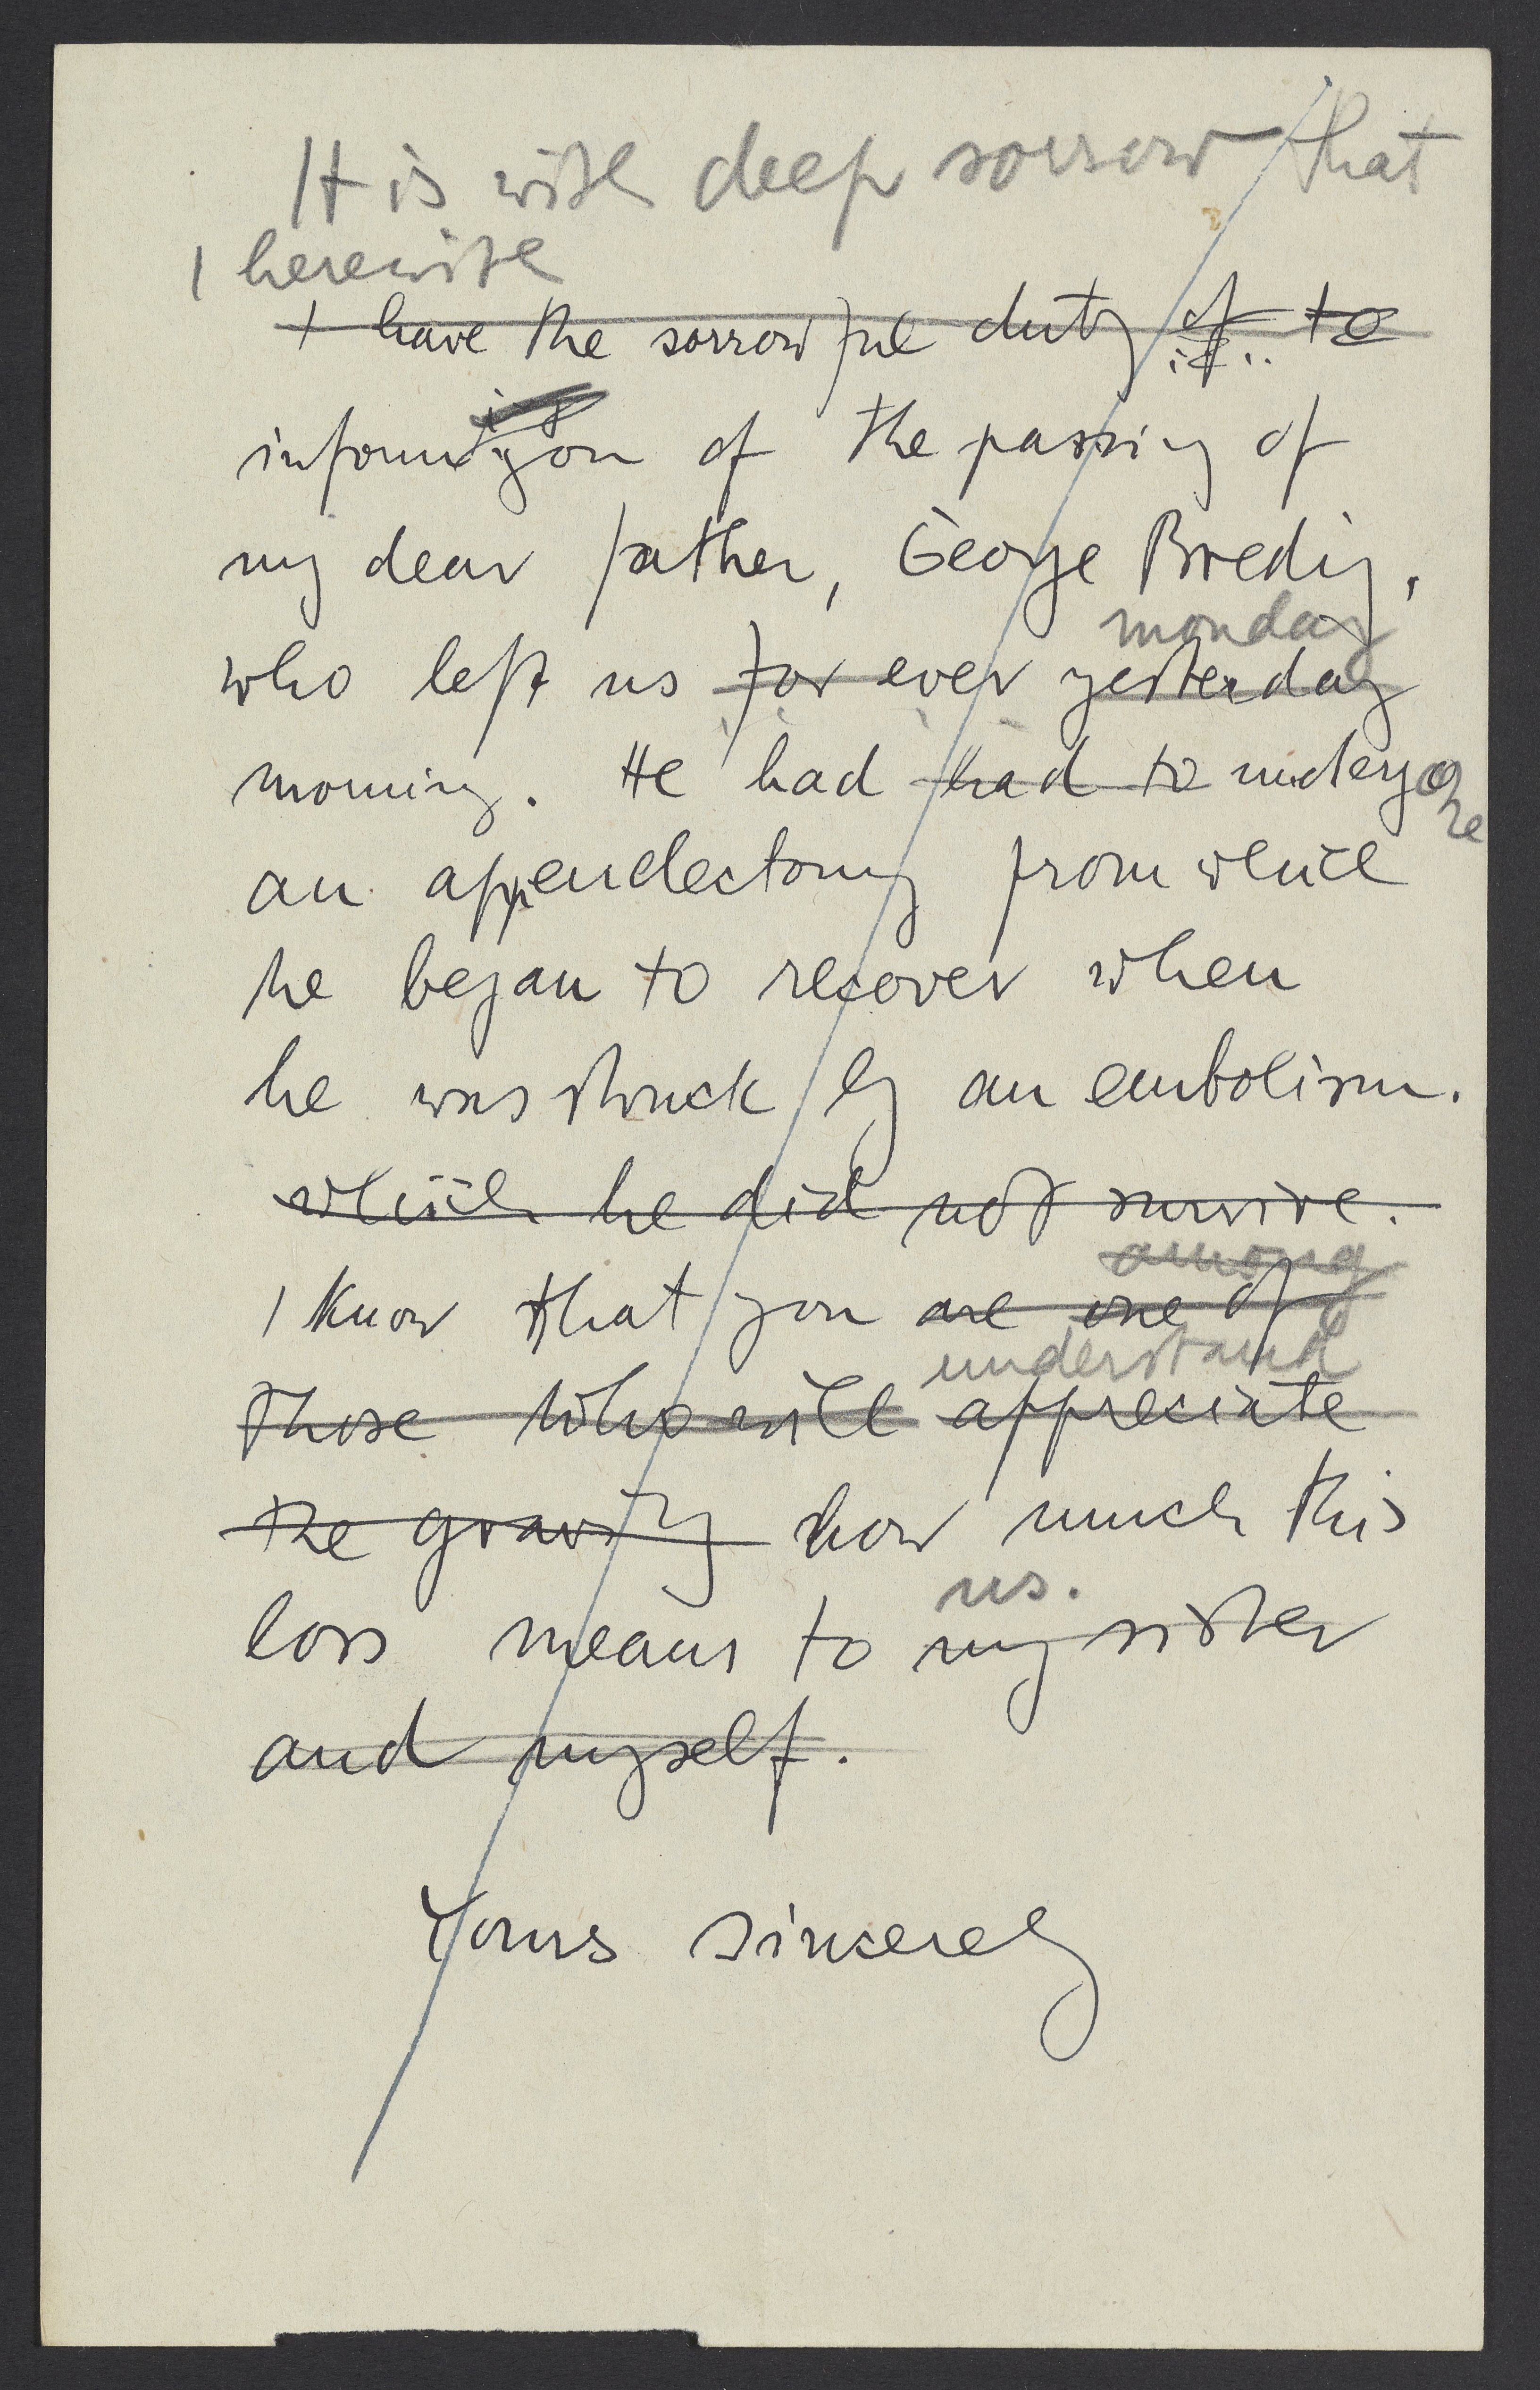 It is with deep sorrow that
I herewith
I have the sorrowful duty of to
inform ing you of the passing of
my dear father, George Bredig,
monday
who left us for ever yesterday
morning. He had had to undergo ne
an appendectomy from which
he began to recover when
he was struck by an embolism.
which he did not survive.
among
I know that you are one of
understand
those who will appreciate
the gravity how much this
us.
loss means to my sister
and myself.
Yours sincerely